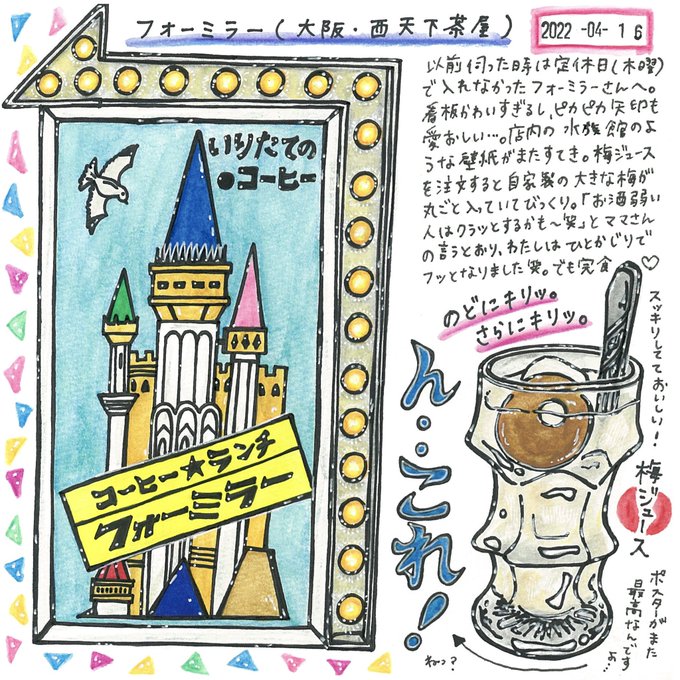 フォーミラー(大阪・西天下茶屋)
2022-04-16
以前伺った時は定休日(木曜)
で入れなかったフォーミラーさんへ。
看板かわいすぎるし、ピカピカ矢印も
愛おしい…。店内の水族館のよ
うな壁紙がまたすてき。梅ジュース
を注文すると自家製の大きな梅が
丸ごと入っていてびっくり。「お酒弱い
人はクラッとするかも〜笑」とママさん
の言うとおり、わたしはひとかじりで
フッとなりました笑。でも完食♡
いりたての
●コーヒー
コーヒー★ランチ
フォーミラー
のどにキリッ。
さらにキリッ。
ん…これ!
スッキリしてておいしい!
梅ジュース
ポスターがまた
最高なんですよ…
ねっ?